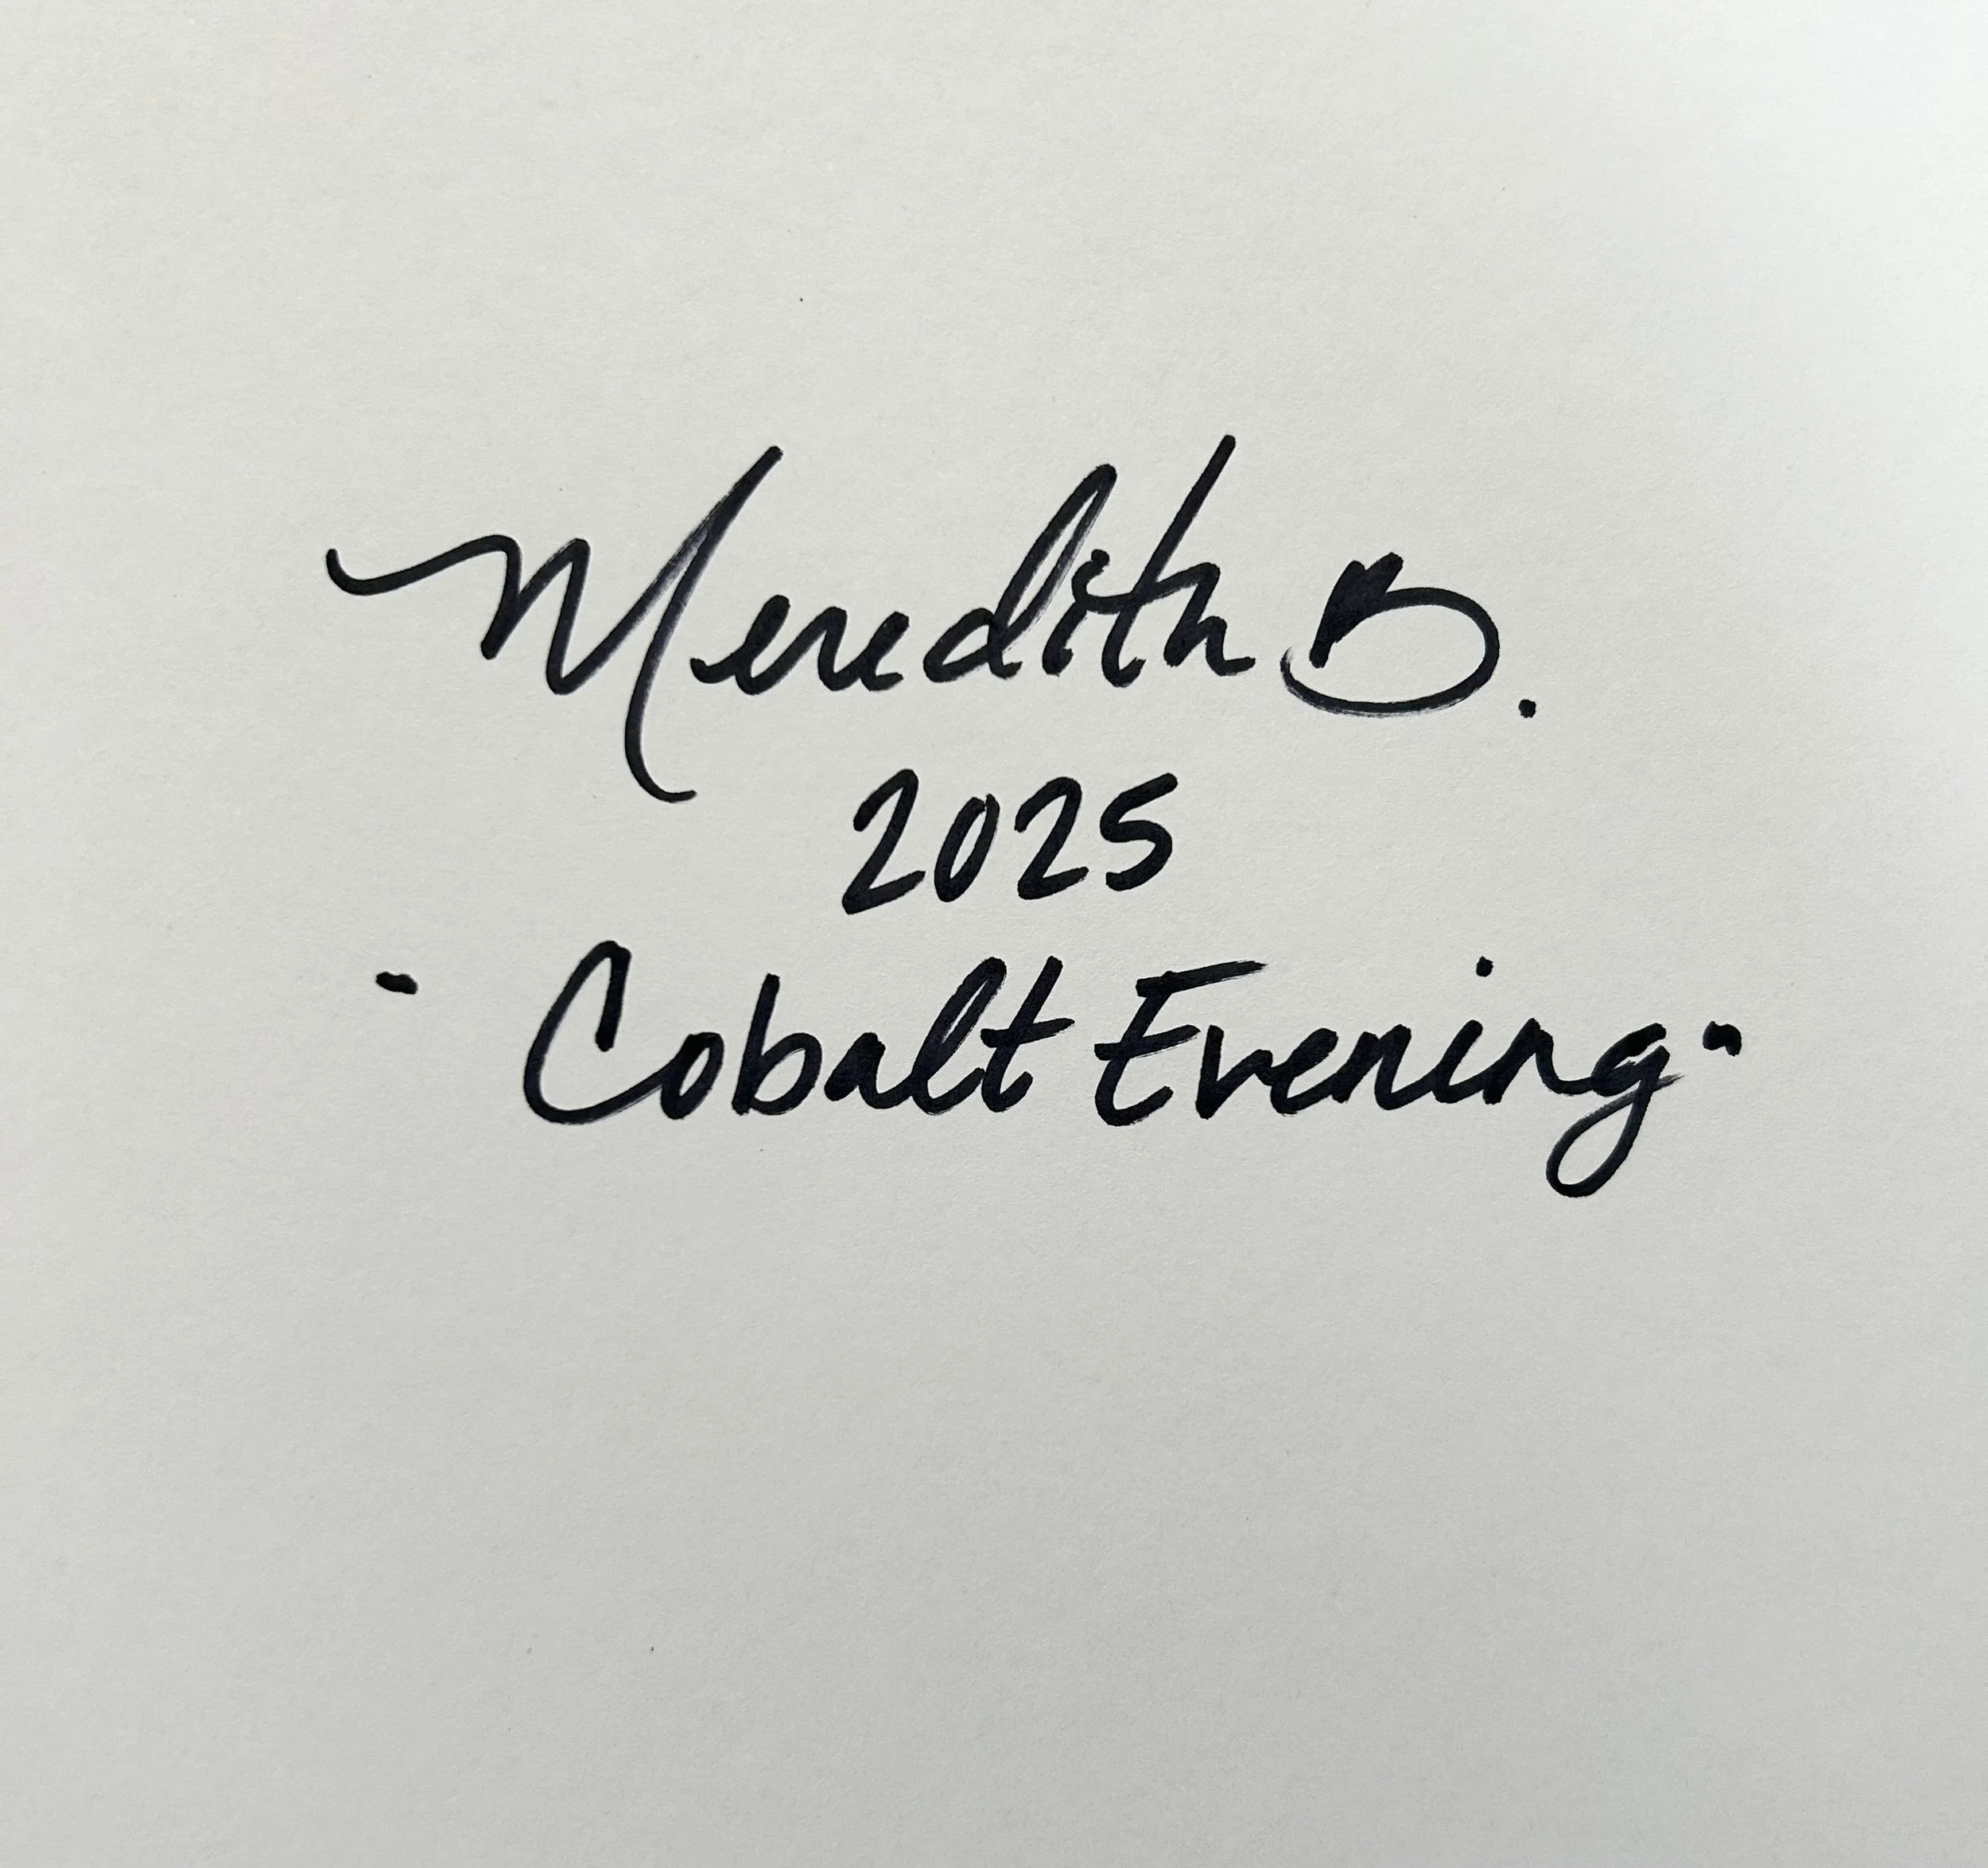 Meredith B.
2025
"Cobalt Evening"